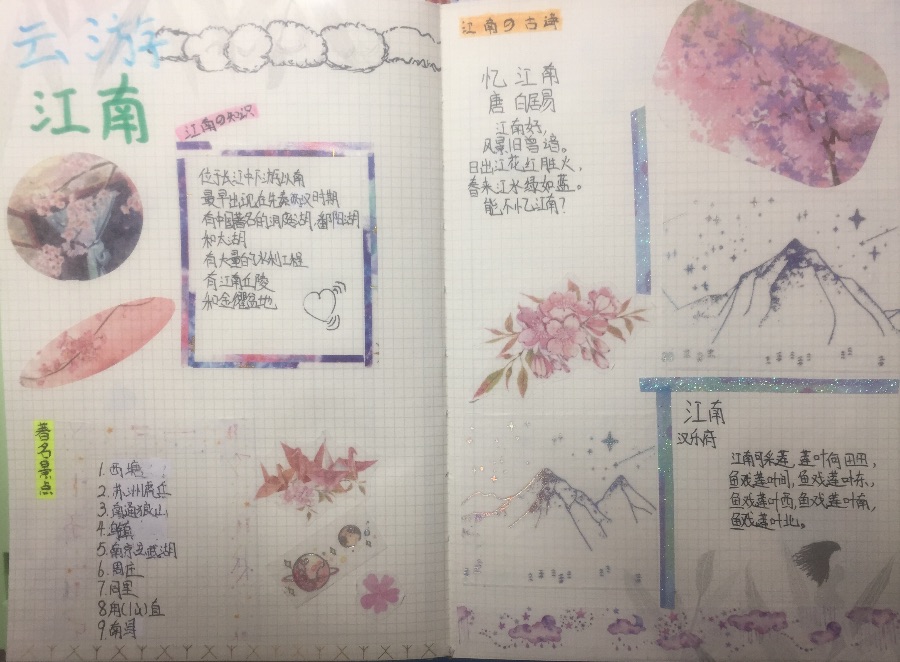 云游
江南
江南の知识
位于长江中下游以南
最早出现在先秦两汉时期
有中国著名的洞庭湖、鄱阳湖
和太湖
有大量的水利工程
有江南丘陵
和金衢盆地
著名景点
1.西塘
2.苏州虎丘
3.南通狼山
4.乌镇
5.南京玄武湖
6.周庄
7.同里
8.甪(lù)直
9.南浔
江南の古诗
忆江南
唐 白居易
江南好,
风景旧曾谙。
日出江花红胜火,
春来江水绿如蓝。
能不忆江南?
江南
汉乐府
江南可采莲,莲叶何田田,
鱼戏莲叶间,鱼戏莲叶东,
鱼戏莲叶西,鱼戏莲叶南,
鱼戏莲叶北。